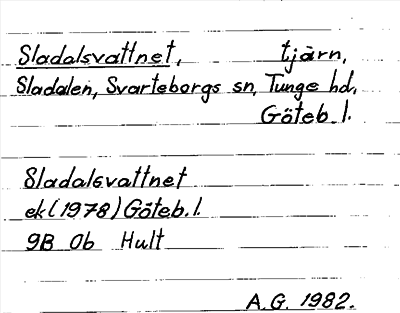 Sladalsvattnet, tjärn,
Sladalen, Svarteborgs sn, Tunge hd,
Göteb. l.
Sladalsvattnet
ek (1978) Göteb. l.
9B 0b Hult
A.G. 1982.